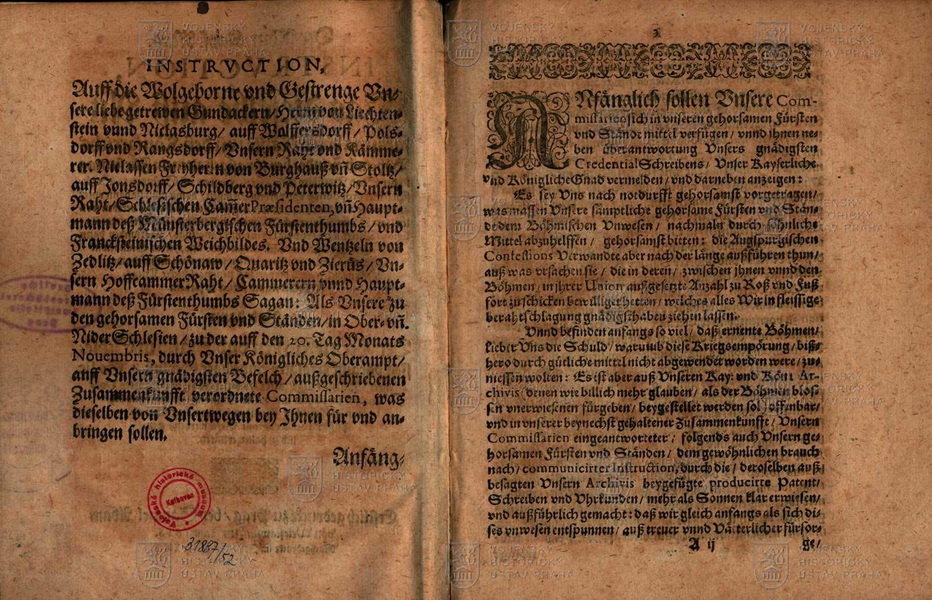 INSTRVCTION,
Auff die Wolgeborne vnd Gestrenge Vn-
sere liebe getrewen Gundackern / Herrn von Liechten-
stein vnnd Niclasburg / auff Wolffersdorff / Pols-
dorff vnd Rangsdorff / Vnsern Raht vnd Kämme-
rer. Niclassen Freyherrn von Burghauß vñ Stoltz /
auff Jonsdorff / Schildberg vnd Peterwitz / Vnsern
Raht / Schlesischen Cam̃er Præsidenten, vñ Haupt-
mann deß Münsterbergischen Fürstenthumbs / vnd
Francksteinischen Weichbildes. Vnd Wentzeln von
Zedlitz / auff Schönaw / Quaritz vnd Zierůs / Vn-
sern Hoffkammer Raht / Cammerern vnnd Haupt-
mann deß Fürstenthumbs Sagan: Als Vnsere zu
den gehorsamen Fürsten vnd Ständen / in Ober- vñ.
Nider Schlesien / zu der auff den 20. Tag Monats
Nouembris, durch Unser Königliches Oberampt /
auff Vnsern gnädigsten Befelch / außgeschriebenen
Zusammenkunfft verordnete Commissarien, was
dieselben von Vnsertwegen bey Jhnen für vnd an-
bringen sollen.
Anfäng-
31882/52
ANfänglich sollen Vnsere Com-
missarien sich in vnseren gehorsamen Fürsten
vnd Stände mittel verfügen / vnnd ihnen ne-
ben überantwortung Vnsers gnädigsten
Credential Schreibens / Vnser Kayserliche
vnd Königliche Gnad vermelden / vnd darneben anzeigen:
Es sey Vns nach notdurfft gehorsamst vorgetragen /
was massen Vnsere sämptliche gehorsame Fürsten vnd Stän-
de dem Böhmischen Vnwesen / nachmaln durch söhnliche
Mittel abzuhelffen / gehorsamst bitten: die Augspurgischen
Confessions Verwandte aber nach der länge außführen thun /
auß was vrsachen sie / die in deren / zwischen jhnen vnnd den
Böhmen / in jhrer Union außgesetzte Anzahl zu Roß vnd Fuß
fort zuschicken bewilliget hetten / welches alles Wir in fleissige
berahtschlagung gnädigst haben ziehen lassen.
Vnnd befinden anfangs so viel / daß ernente Böhmen /
lieber Vns die Schuld / warumb diese Kriegsempörung / biß-
hero durch gütliche mittel nicht abgewendet worden were / zu-
messen wolten: Es ist aber auß Vnseren Kay: vnd Köni: Ar-
chivis (denen wie billich mehr glauben / als der Böhmen blos-
sen vnerwiesenen fürgeben / beygestellet werden sol) offenbar /
vnd in vnserer beynechst gehaltener Zusammenkunffte / Vnsern
Commissarien eingeantworteter / folgends auch Vnsern ge-
horsamen Fürsten vnd Ständen / dem gewöhnlichen brauch
nach / communicirter Instruction, durch die / deroselben auß
besagten Vnsern Archivis beygefügte producirte Patent /
Schreiben vnd Vhrkunden / mehr als Sonnen klar erwiesen /
vnd außführlich gemacht: daß wir gleich anfangs als sich di-
ses vnwesen entspunnen / auß trewer vnnd Vätterlicher fürsor-
A ij
ge /